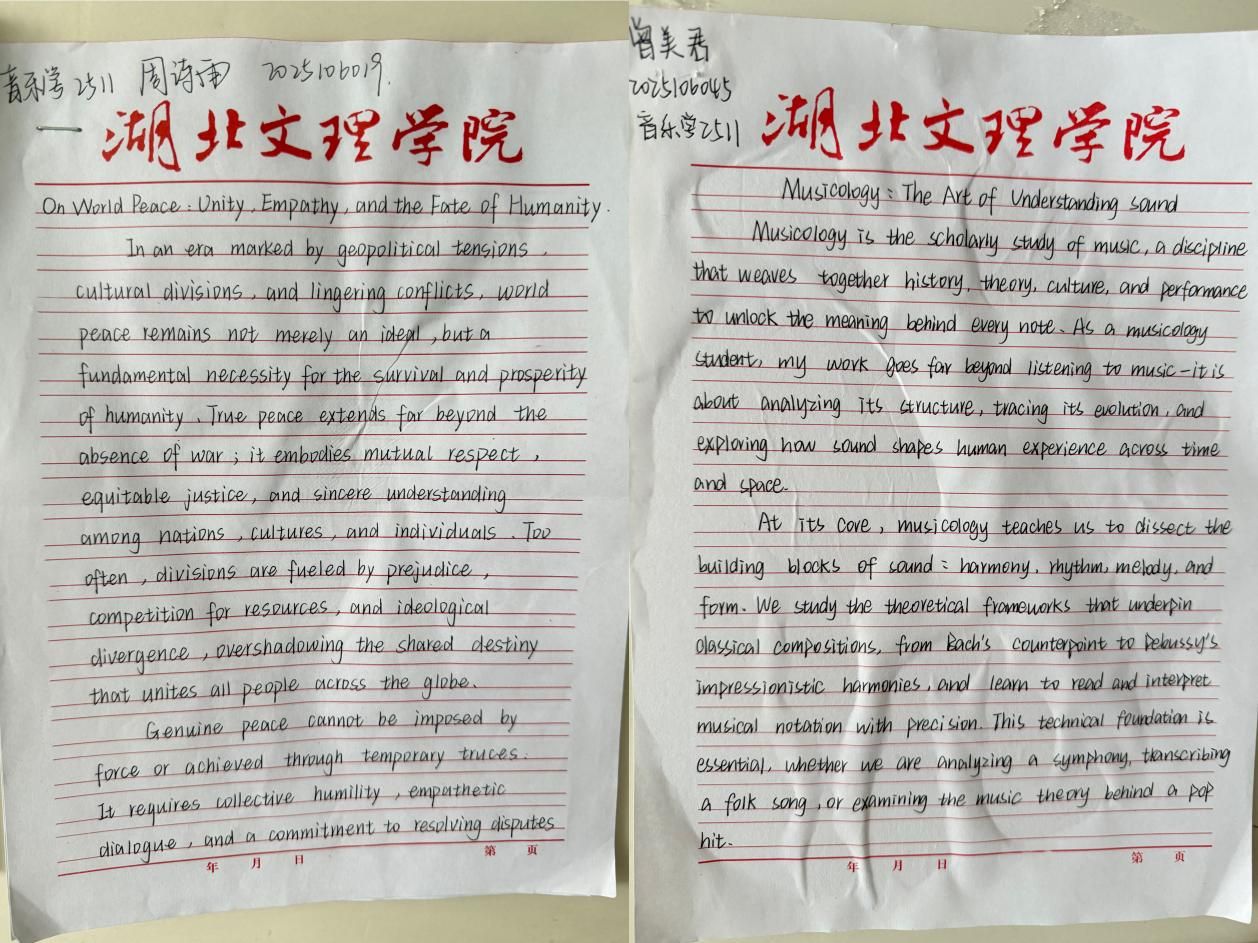 音乐学2511 周诗雨 2025106019.
湖北文理学院
On World Peace: Unity, Empathy, and the Fate of Humanity.
In an era marked by geopolitical tensions,
cultural divisions, and lingering conflicts, world
peace remains not merely an ideal, but a
fundamental necessity for the survival and prosperity
of humanity. True peace extends far beyond the
absence of war; it embodies mutual respect,
equitable justice, and sincere understanding
among nations, cultures, and individuals. Too
often, divisions are fueled by prejudice,
competition for resources, and ideological
divergence, overshadowing the shared destiny
that unites all people across the globe.
Genuine peace cannot be imposed by
force or achieved through temporary truces.
It requires collective humility, empathetic
dialogue, and a commitment to resolving disputes
年 月 日 第 页
曾美君
2025106045
音乐学2511
湖北文理学院
Musicology: The Art of Understanding sound
Musicology is the scholarly study of music, a discipline
that weaves together history, theory, culture, and performance
to unlock the meaning behind every note. As a musicology
student, my work goes far beyond listening to music-it is
about analyzing its structure, tracing its evolution, and
exploring how sound shapes human experience across time
and space.
At its core, musicology teaches us to dissect the
building blocks of sound: harmony, rhythm, melody, and
form. We study the theoretical frameworks that underpin
classical compositions, from Bach's counterpoint to Debussy's
impressionistic harmonies, and learn to read and interpret
musical notation with precision. This technical foundation is
essential, whether we are analyzing a symphony, transcribing
a folk song, or examining the music theory behind a pop
hit.
年 月 日 第 页